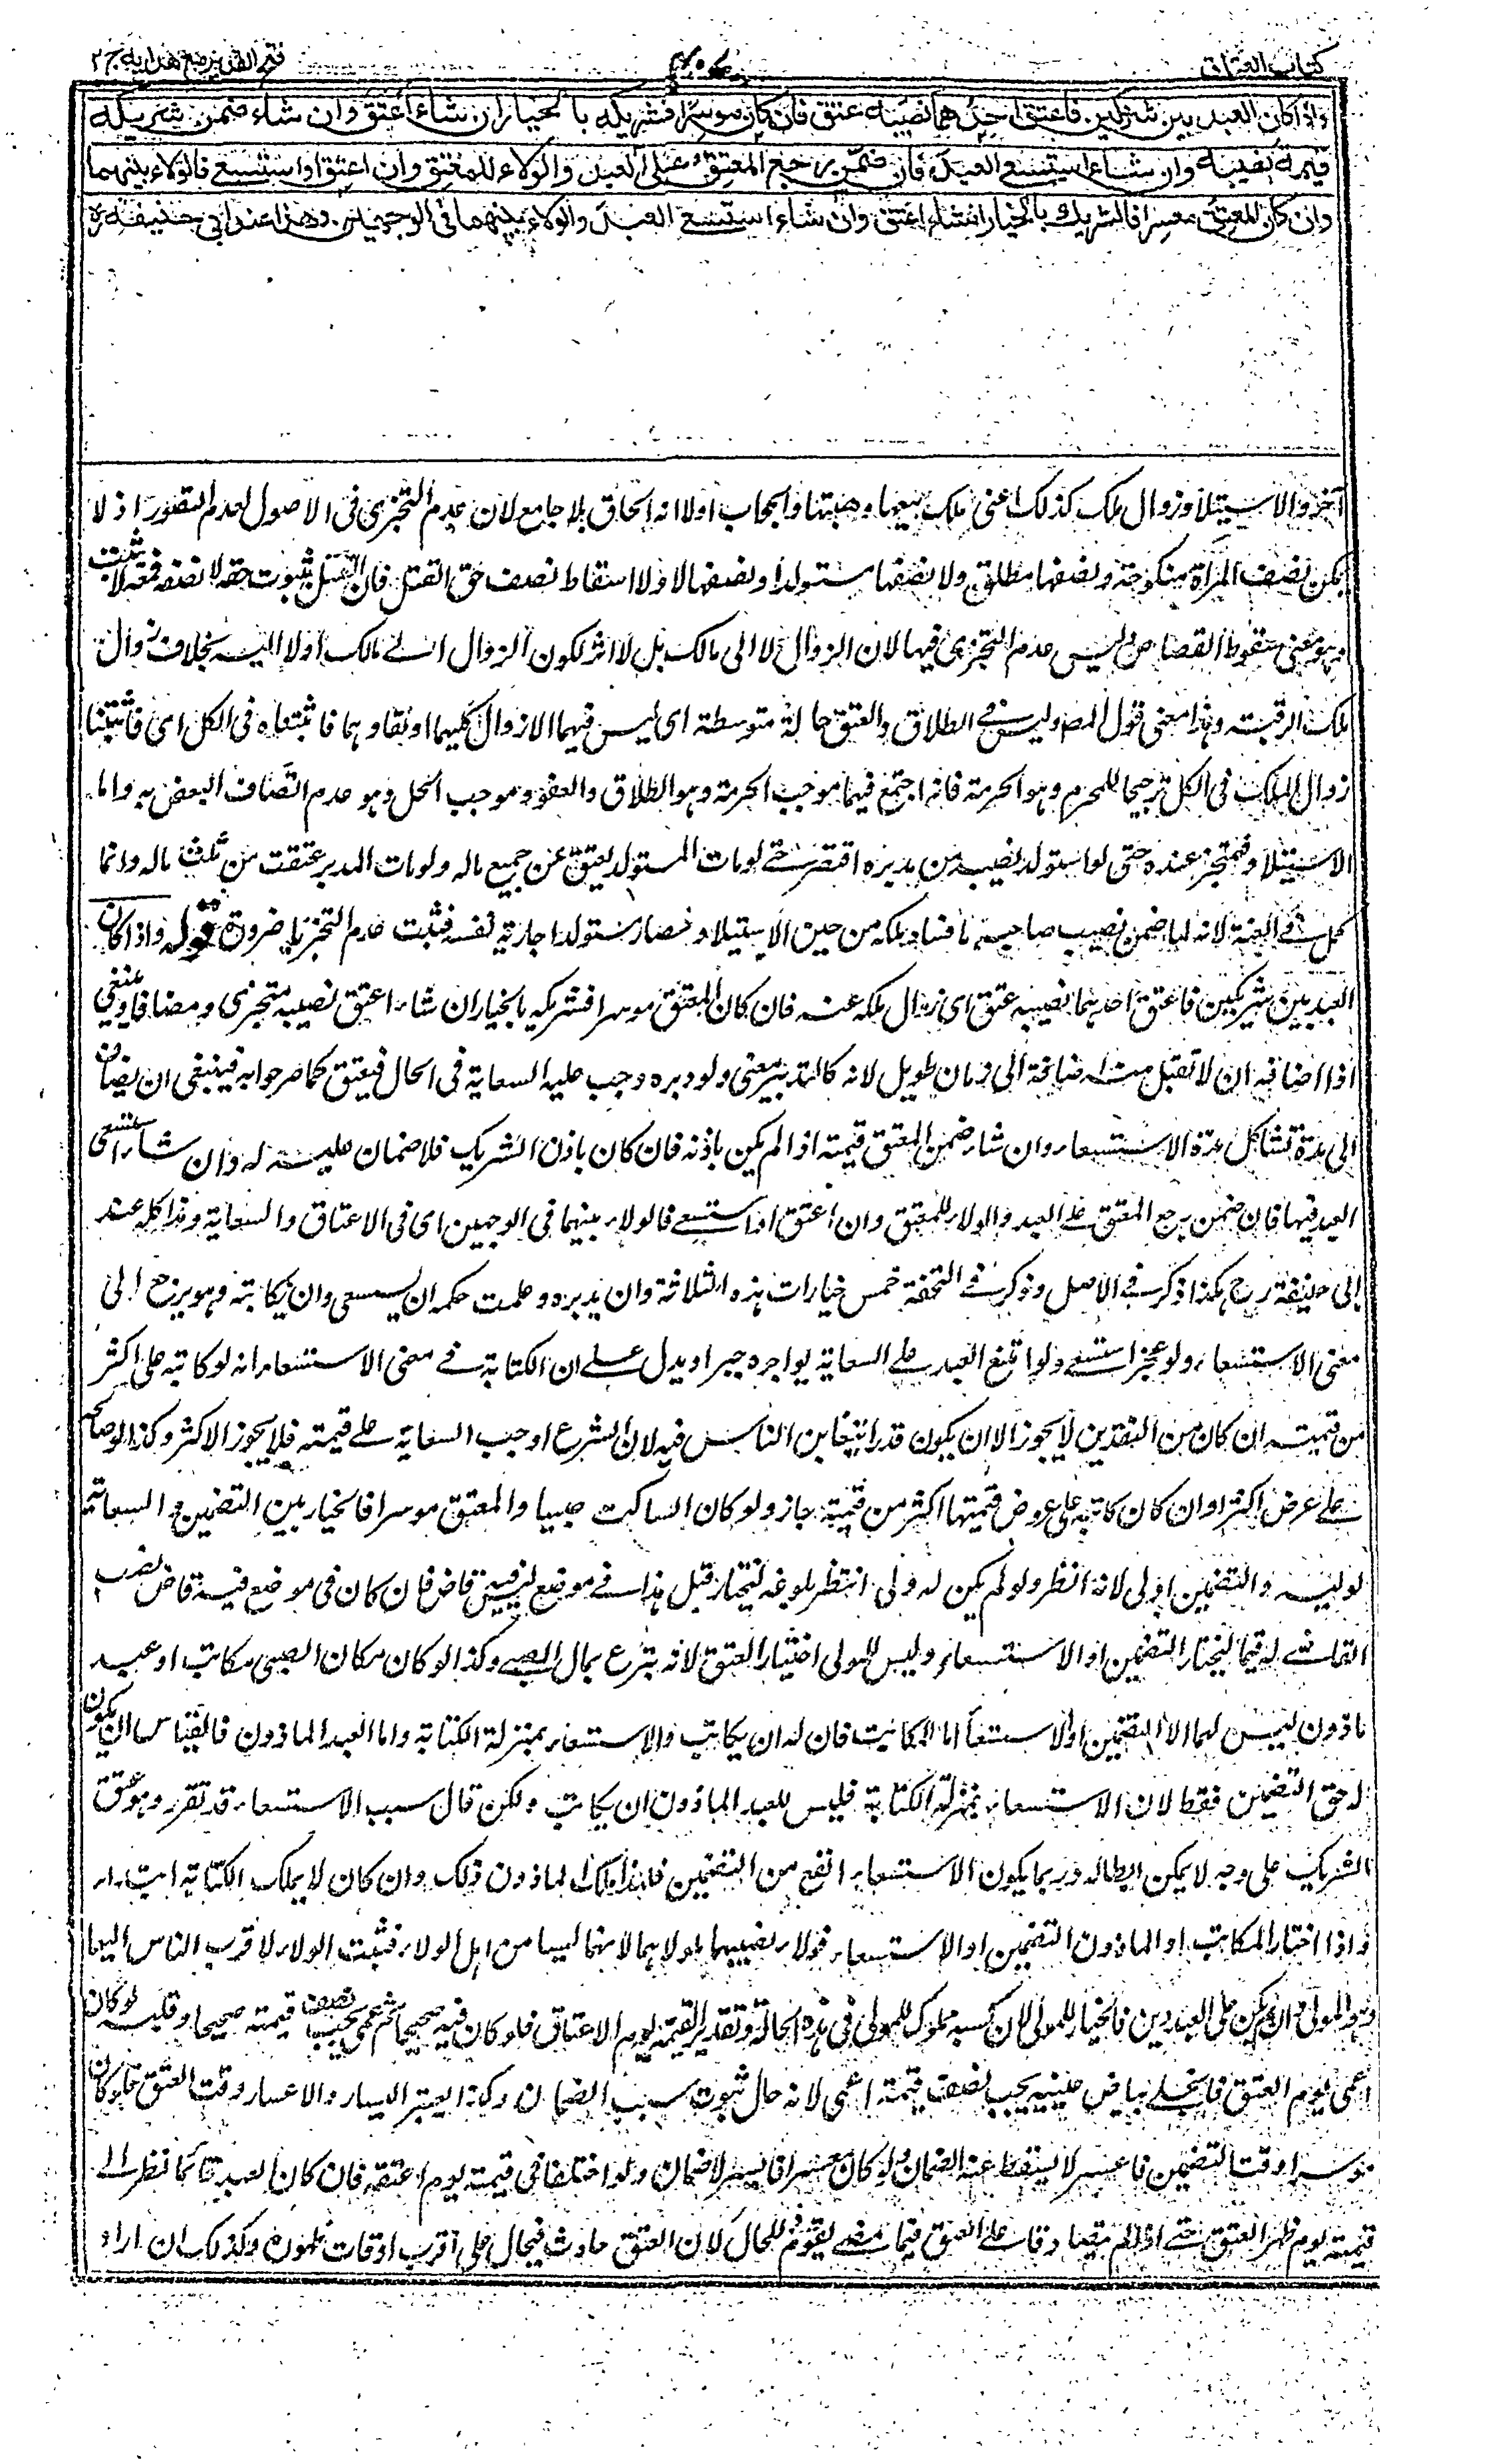 كتاب العتاق
فتح القدير مع هدايه ج ٢
واذا كان العبد بين شريكين فاعتق احدهما نصيبه عتق فان كان موسرا فشريكه بالخيار ان شاء اعتق وان شاء ضمن شريكه
قيمة نصيبه وان شاء استسعى العبد فان ضمن رجع المعتق على العبد والولاء للمعتق وان اعتق او استسعى فالولاء بينهما
وان كان المعتق معسرا فالشريك بالخيار ان شاء اعتق وان شاء استسعى العبد والولاء بينهما في الوجهين وهذا عند ابي حنيفة رح
آخر والاستيلاء وزوال ملك كذلك اعنى ملك بيعها وهبتها اولا انه الحاق بلا جامع لان عدم التجزى فى الاصول لعدم التصور اذ لا
يمكن نصف المرأة منكوحة ونصفها مطلق ولا نصفها مستولدا ونصفها لا ولا اسقاط نصف حق القتل فان القتل ثبوت حقه لا نصفه
وهو معنى سقوط القصاص ليس عدم التجزى فيها لان الزوال لا الى مالك بل لا اثر لكون الزوال الى مالك اولا اليه بخلاف زوال
ملك الرقبة وهذا معنى قول المص وليس فى الطلاق والعتق حالة متوسطة اى ليس فيهما الا زوال كليهما او بقاوهما فاثبتناه فى الكل اى فاثبتنا
زوال الملك فى الكل ترجيحا للمحرم وهو الحرمة فانه اجتمع فيهما موجب الحرمة وهو الطلاق والعفو وموجب الحل وهو عدم اتصاف البعض به واما
الاستيلاد فمتجز عنده حتى لو استولد نصيبه من مدبرة اقتصر حتى لو مات المستولد يعتق من جميع ماله ولو مات المدبر عتقت من ثلث ماله وانما
كمل فى القنة لانه لما ضمن نصيب صاحبه بالافساد ملكه من حين الاستيلاد فصار مستولدا جارية نفسه فثبت عدم التجزى ضرورة قوله واذا كان
العبد بين شريكين فاعتق احدهما نصيبه عتق اى زوال ملكه عنه فان كان المعتق موسرا فشريكه بالخيار ان شاء اعتق نصيبه متجزى ومضافا وينبغى
اذا اضافه ان لا تقبل منه اضافته الى زمان طويل لانه كالتدبير معنى ولو دبره وجب عليه السعاية فى الحال فيعتق كما صرحوا به فينبغى ان يضاف
الى مدة تشاكل مدة الاستسعاء وان شاء ضمن المعتق قيمته اذا لم يكن باذنه فان كان باذن الشريك فلا ضمان عليه له وان شاء استسعى
العبد فيها فان ضمن رجع المعتق على العبد والولاء للمعتق وان اعتق او استسعى فالولاء بينهما فى الوجهين اى فى الاعتاق والسعاية وهذا كله عند
ابى حنيفة رح هكذا ذكر فى الاصل وذكر فى التحفة خمس خيارات هذه الثلاثة وان يدبره وعلمت حكمه ان يسعى وان يكاتبه وهو يرجع الى
معنى الاستسعاء ولو عجز استسعى ولو امتنع العبد على السعاية يواجره جبرا ويدل على ان الكتابة فى معنى الاستسعاء انه لو كاتبه على اكثر
من قيمته ان كان من النقدين لا يجوز الا ان يكون قدرا يتغابن الناس فيه لان الشرع اوجب السعاية على قيمته فلا يجوز الاكثر وكذا لو صالحه
على عرض اكثر او ان كان كاتبه على عروض قيمتها اكثر من قيمته جاز ولو كان الساكت صبيا والمعتق موسرا فالخيار بين التضمين والسعاية
لوليه والتضمين اولى لانه انظر ولو لم يكن له ولى انتظر بلوغه ليختار قيل هذا فى موضع ليس فيه قاض فان كان فى موضع فيه قاض نصب
القاضى له قيما ليختار التضمين او الاستسعاء وليس للولى اختيار العتق لانه تبرع بمال الصبى وكذا لو كان مكان الصبى مكاتب او عبد
ماذون ليس لهما الا التضمين او الاستسعاء اما المكاتب فان له ان يكاتب والاستسعاء بمنزلة الكتابة واما العبد الماذون فالقياس ان يكون
له حق التضمين فقط لان الاستسعاء بمنزلة الكتابة فليس للعبد الماذون ان يكاتب ولكن قال سبب الاستسعاء قد تقرر وهو عتق
الشريك على وجه لا يمكن ابطاله وربما يكون الاستسعاء انفع من التضمين فلهذا ملك الماذون ذلك وان كان لا يملك الكتابة ابتداء
واذا اختار المكاتب او الماذون التضمين او الاستسعاء فولاء نصيبهما لمولاهما لانهما ليسا من اهل الولاء فثبت الولاء لاقرب الناس اليهما
وهو المولى وان لم يكن على العبد دين فالخيار للمولى لان كسبه مملوك للمولى فى هذه الحالة وتقدير القيمة يوم الاعتاق فلو كان فيه صحيحا ثم عمى يجب نصف قيمته صحيحا وقلبه لو كان
اعمى يوم العتق فانجلى بياض عينيه يجب نصف قيمته اعمى لانه حال ثبوت سبب الضمان وكذا يعتبر اليسار والاعسار وقت العتق حتى لو كان
موسرا وقت التضمين فاعسر لا يسقط عنه الضمان ولو كان معسرا فايسر لا ضمان ولو اختلفا فى قيمته يوم اعتقه فان كان العبد قائما نظر الى
قيمته يوم ظهر العتق حتى اذا لم يتصادقا على العتق فيما مضى يقوم للحال لان العتق حادث فيحال على اقرب اوقات ظهوره وكذلك ان اراد